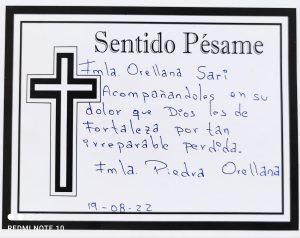 Sentido Pésame
Fmla. Orellana Sari
Acompañandoles en su
dolor que Dios les de
Fortaleza por tan
irreparable perdida.
Fmla. Piedra Orellana
19-08-22
REDMI NOTE 10